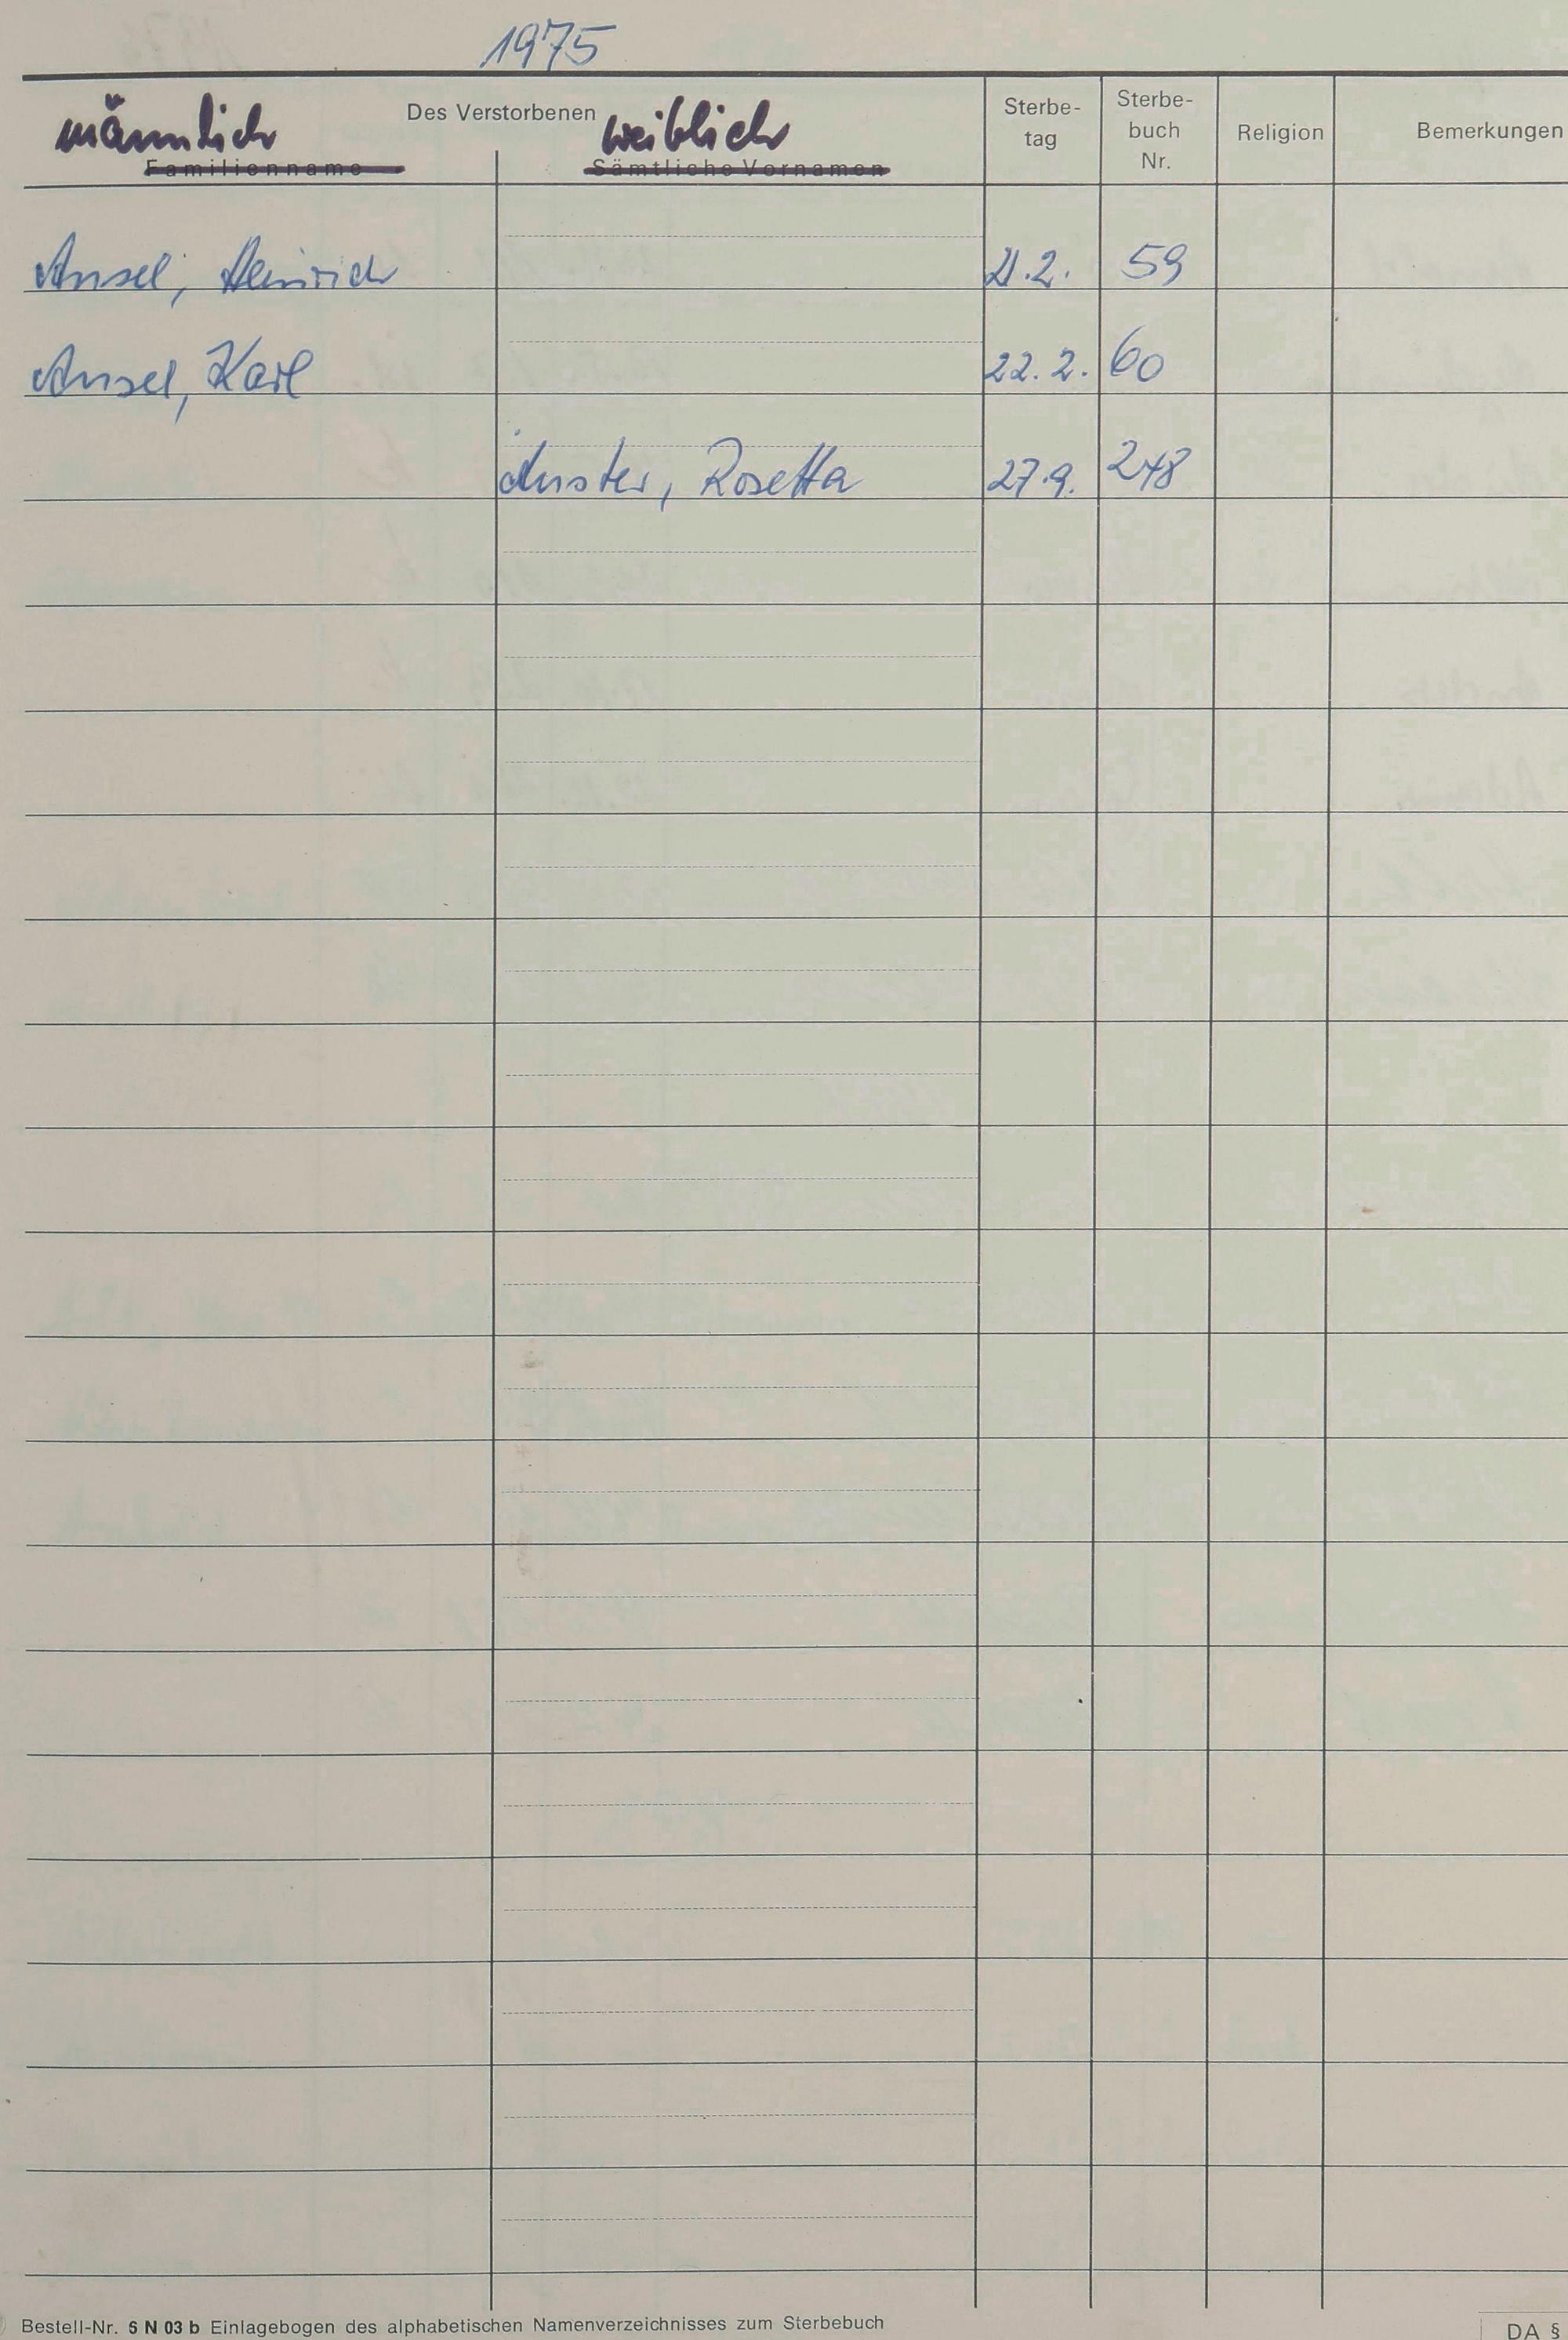 1975
männlich Des Verstorbenen weiblich
Familienname Sämtliche Vornamen
Sterbe-
tag
Sterbe-
buch
Nr.
Religion
Bemerkungen
Ansel, Heinrich 21.2. 59
Ansel, Karl 22.2. 60
Rosetta 27.9. 248
Bestell-Nr. 6 N 03 b Einlagebogen des alphabetischen Namenverzeichnisses zum Sterbebuch
DA §